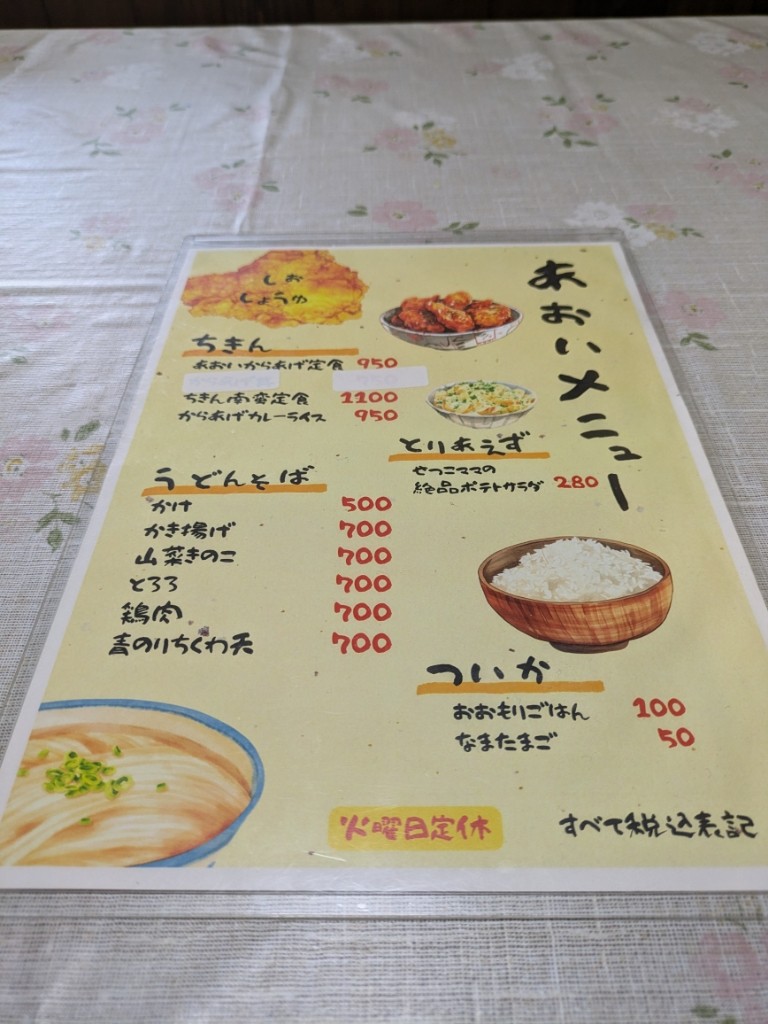 あおいメニュー
しお
しょうゆ
ちきん
あおいからあげ定食 950
ちきん南蛮定食 1100
からあげカレーライス 950
とりあえず
せつこママの
絶品ポテトサラダ 280
うどんそば
かけ 500
かき揚げ 700
山菜きのこ 700
とろろ 700
鶏肉 700
青のりちくわ天 700
ついか
おおもりごはん 100
なまたまご 50
火曜日定休
すべて税込表記